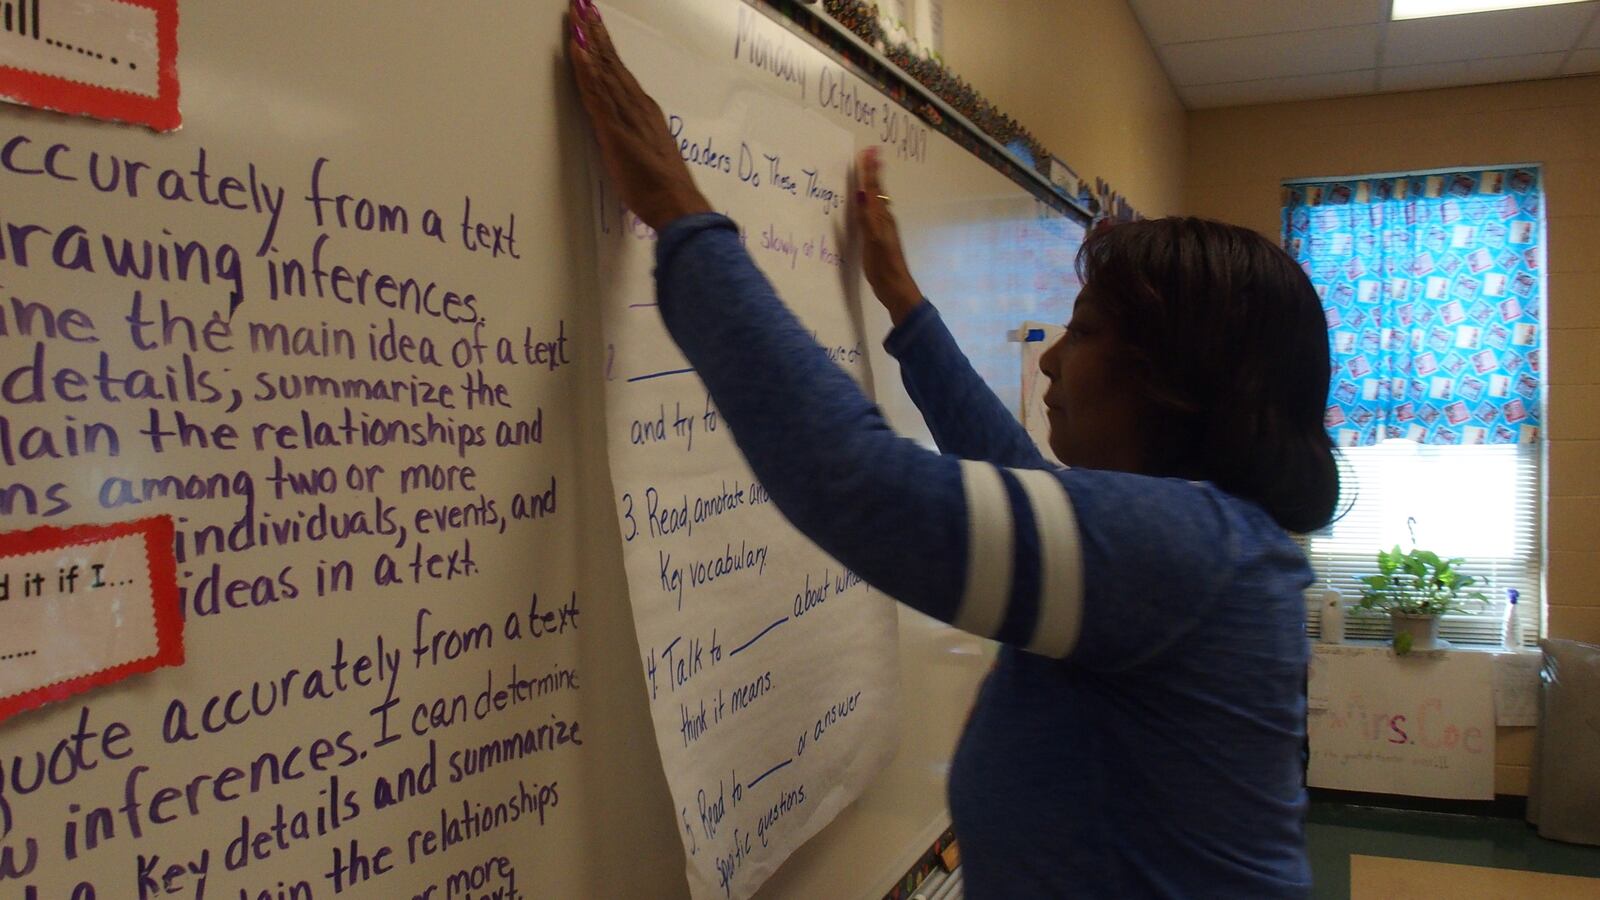 ill.......
ccurately from a text
rawing inferences.
ine the main idea of a text
details; summarize the
lain the relationships and
ns among two or more
individuals, events, and
ideas in a text.
d it if I...
......
uote accurately from a text
w inferences. I can determine
Key details and summarize
lain the relationships
or more
text.
Monday October 30, 2017
Readers Do These Things:
1. slowly at least
2. ure of
and try to
3. Read, annotate and
Key vocabulary.
4. Talk to ____ about what
think it means.
5. Read to ____ or answer
specific questions.
Mrs. Coe